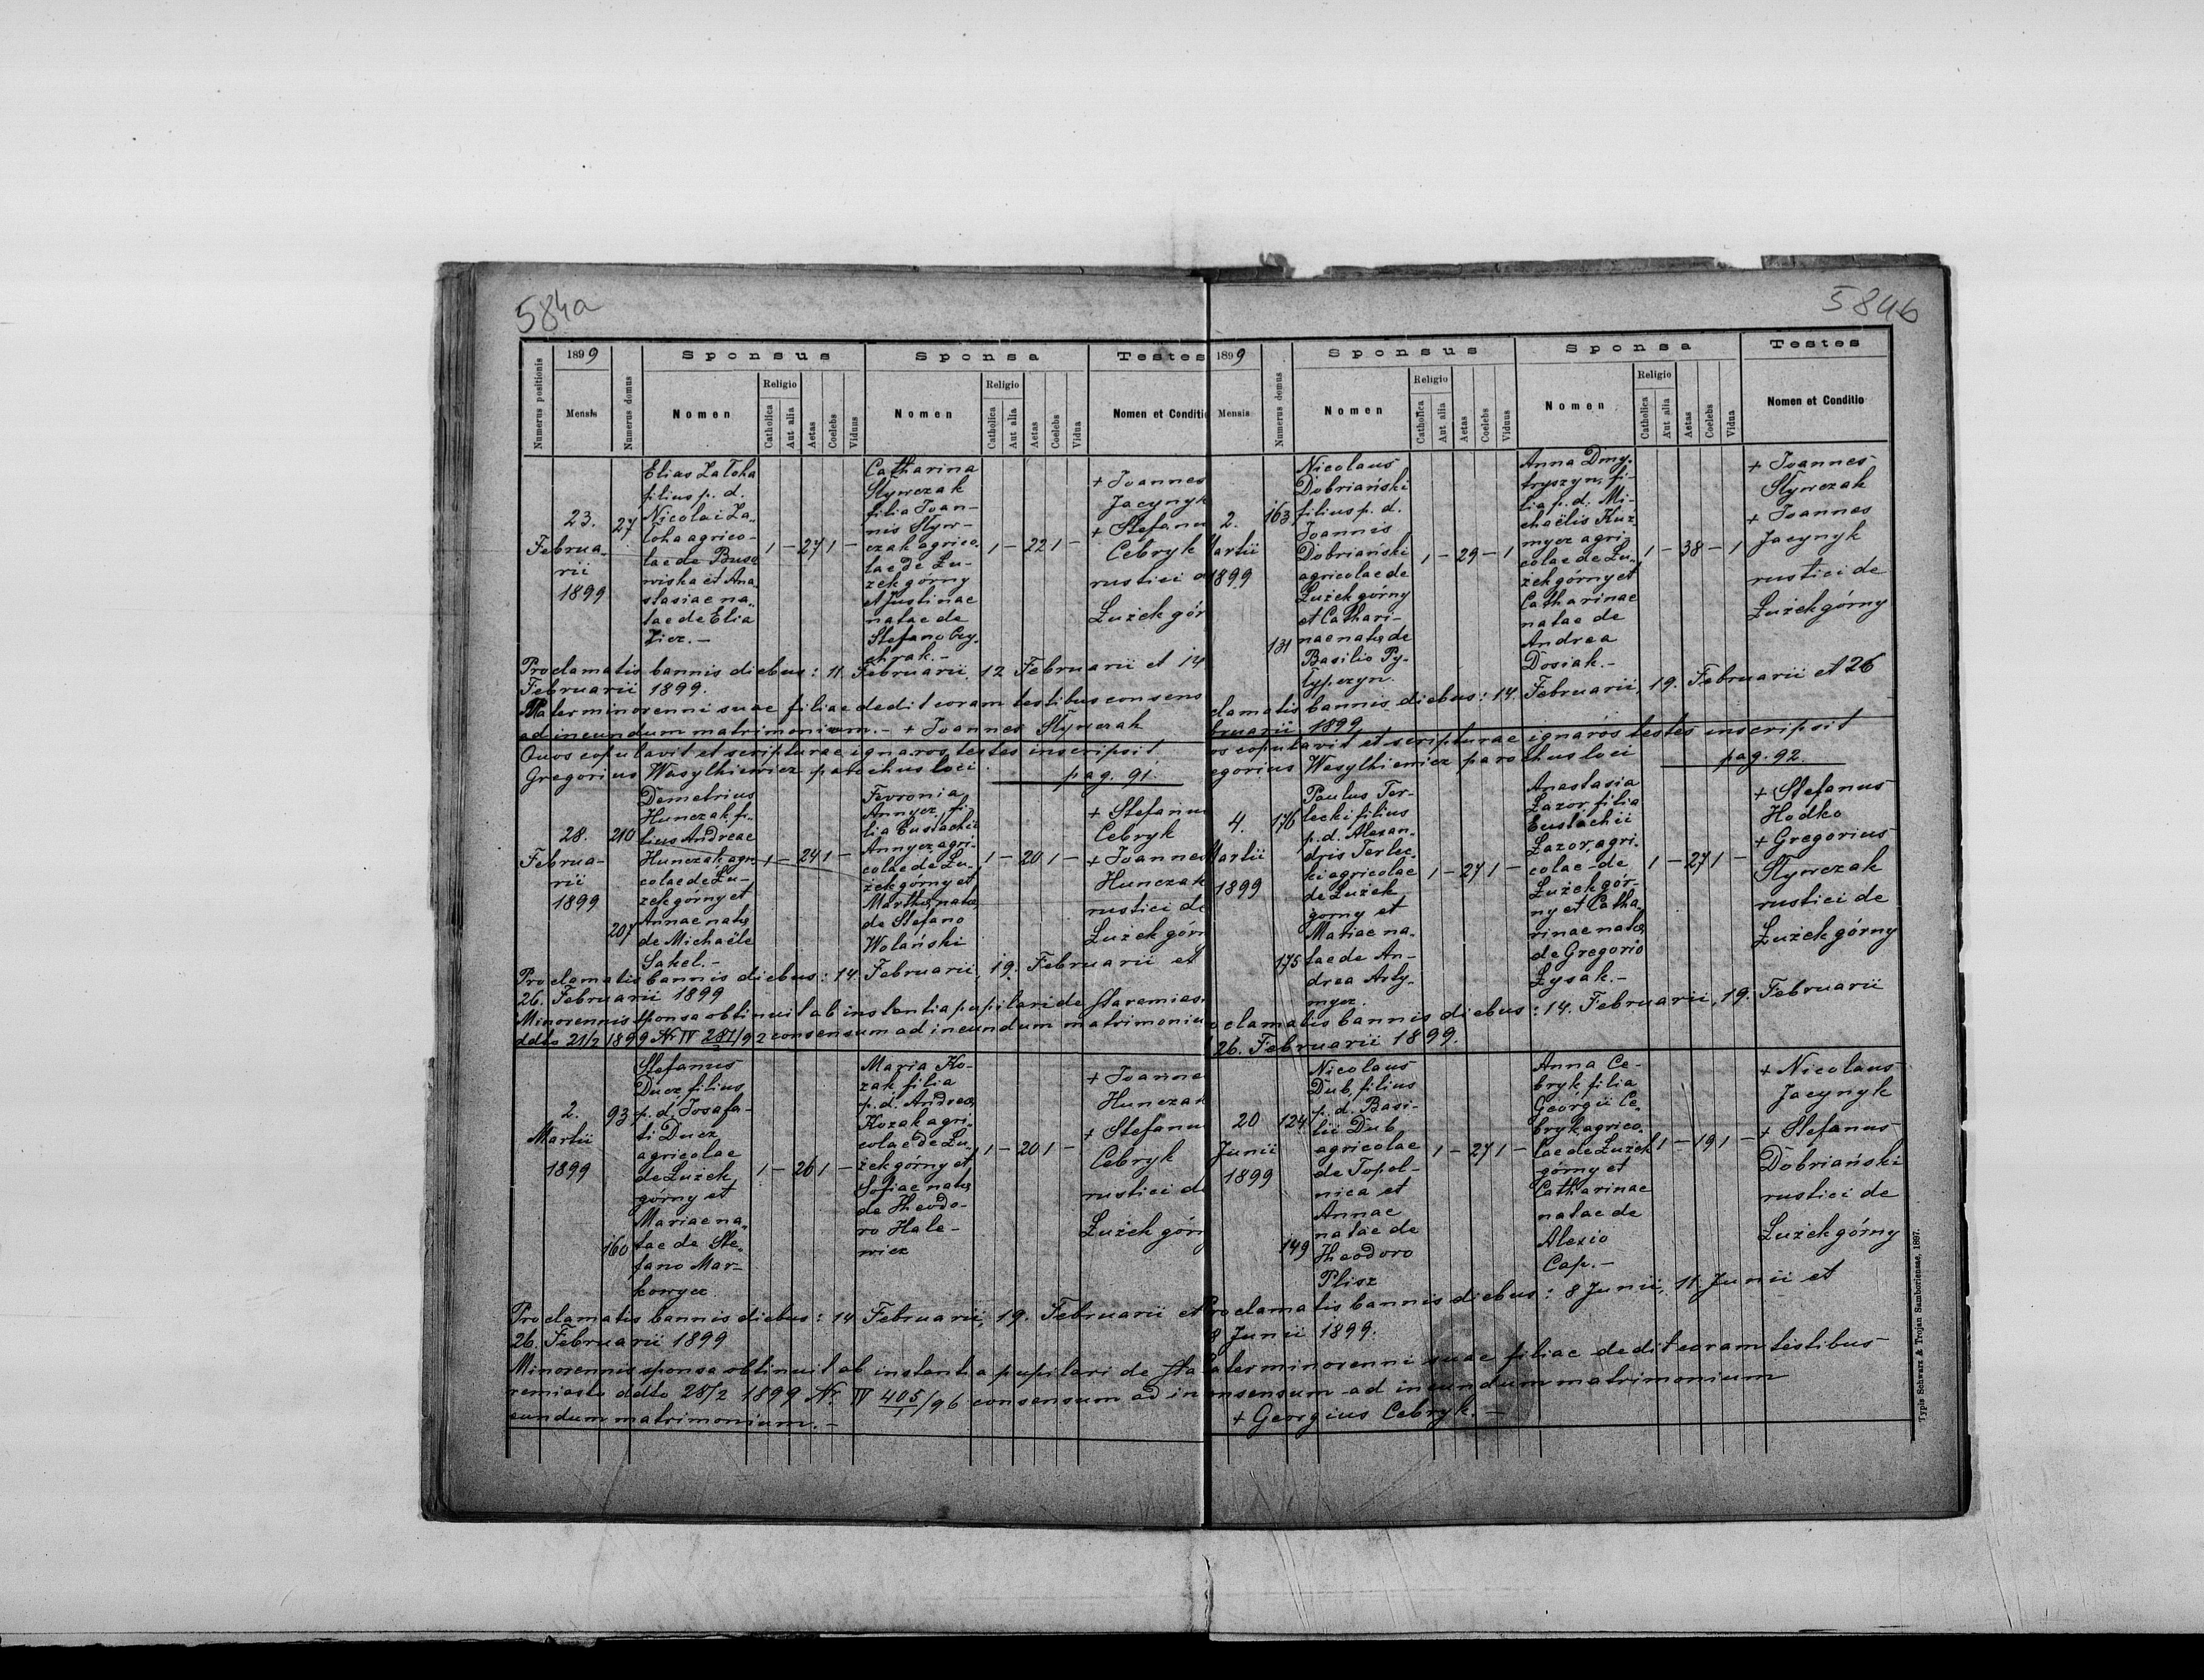 584a
1899
Sponsus
Sponsa
Testes
Numerus positionis
Mensis
Numerus domus
Nomen
Religio
Catholica
Aut alia
Aetas
Coelebs
Viduus
Nomen
Religio
Catholica
Aut alia
Aetas
Coelebs
Vidua
Nomen et Conditio
23.
Februa-
rii
1899
27
Elias Zaloha
filius p. d.
Nicolai Za-
loha agrico-
lae de Buso
wiska et Ana
stasiae na-
tae de Elia
1 — 27 1 —
Catharina
Slywczak
filia Joan-
nis Slyw-
czak agrico-
lae de Łu-
żek górny
et Justinae
natae de
Stefano Cey-
chrak. —
1 — 22 1 —
+ Joannes
Jacynyk
+ Stefanu
Cebryk
rustici d
Łużek gór
Proclamatis bannis diebus: 11. Februarii, 12 Februarii et 14
Februarii 1899.
Pater minorenni suae filiae dedit coram testibus consens
ad ineundum matrimonium. — + Joannes Slywczak
Quos copulavit et scripturae ignaros testes inscripsit
Gregorius Wasylkiewicz parochus loci
pag. 91.
28.
Februa-
rii
1899
210
207
Demetrius
Hunczak fi-
lius Andreae
Hunczak agri-
colae de Łu-
żek górny et
Annae natae
de Michaële
Sakel. —
1 — 24 1 —
Fevronia
Annycz fi-
lia Eustachii
Annycz agri-
colae de Łu-
żek górny et
Marthae natae
de Stefano
Wolański
1 — 20 1 —
+ Stefanu
Cebryk
+ Joannes
Hunczak
rustici de
Łużek górn
Proclamatis bannis diebus: 14. Februarii, 19. Februarii et
26. Februarii 1899
Minorennis sponsa obtinuit ab instantia pupilari de Staremias
ddto 21/2 1899 Nr IV 281/92 consensum ad ineundum matrimoniu
2.
Martii
1899
93
160
Stefanus
Ducz, filius
p. d. Josafa-
ti Ducz
agricolae
de Łużek
górny et
Mariae na-
tae de Ste-
fano Mar-
kowycz
1 — 26 1 —
Maria Ko-
zak filia
p. d. Andreae
Kozak agri-
colae de Łu-
żek górny et
Sofiae natae
de Theodo-
ro Hale-
wicz
1 — 20 1 —
+ Joanne
Hunczak
+ Stefanu
Cebryk
rustici d
Łużek górn
Proclamatis bannis diebus: 14 Februarii, 19. Februarii et
26. Februarii 1899
Minorennis sponsa obtinuit ab instantia pupilari de Sta
remiasto ddto 28/2 1899 Nr. IV 405/1/96 consensum ad in
eundum matrimonium. —
5846
1899
Sponsus
Sponsa
Testes
Mensis
Numerus domus
Nomen
Religio
Catholica
Aut alia
Aetas
Coelebs
Viduus
Nomen
Religio
Catholica
Aut alia
Aetas
Coelebs
Vidua
Nomen et Conditio
2.
Martii
1899
163
131
Nicolaus
Dobriański
filius p. d.
Joannis
Dobriański
agricolae de
Łużek górny
et Cathari-
nae natae de
Basilio Py-
lypczyn.
1 — 29 — 1
Anna Dmy-
tryszyn, fi-
lia p. d. Mi-
chaëlis Kuź
mycz agri-
colae de Łu-
żek górny et
Catharinae
natae de
Andrea
Dosiak. —
1 — 38 — 1
+ Joannes
Slywczak
+ Joannes
Jacynyk
rustici de
Łużek górny
clamatis bannis diebus: 14. Februarii, 19. Februarii et 26
bruarii 1899
os copulavit et scripturae ignaros testes inscripsit
egorius Wasylkiewicz parochus loci
pag. 92.
4.
Martii
1899
176
175
Paulus Ter-
lecki filius
p. d. Alexan-
dris Terlec-
ki agricolae
de Łużek
górny et
Mariae na-
tae de An-
drea Arty-
mycz.
1 — 27 1 —
Anastasia
Łazor filia
Eustachii
Łazor, agri-
colae de
Łużek gór-
ny et Catha-
rinae natae
de Gregorio
Łysak. —
1 — 27 1 —
+ Stefanus
Hodko
+ Gregorius
Slywczak
rustici de
Łużek górny
oclamatis bannis diebus: 14. Februarii, 19. Februarii
26. Februarii 1899.
20
Junii
1899
124
149
Nicolaus
Dub, filius
p. d. Basi-
lii Dub
agricolae
de Topol-
nica et
Annae
natae de
Theodoro
Plisz
1 — 27 1 —
Anna Ce-
bryk filia
Georgii Ce-
bryk, agrico-
lae de Łużek
górny et
Catharinae
natae de
Alexio
Cap. —
1 — 19 1 —
+ Nicolaus
Jacynyk
+ Stefanus
Dobriański
rustici de
Łużek górny
Proclamatis bannis diebus: 8 Junii, 11. Junii et
Junii 1899.
ater minorenni suae filiae dedit coram testibus
onsensum ad ineundum matrimonium
+ Georgius Cebryk. —
Typis Schwarz & Trojan Samboriense, 1897.